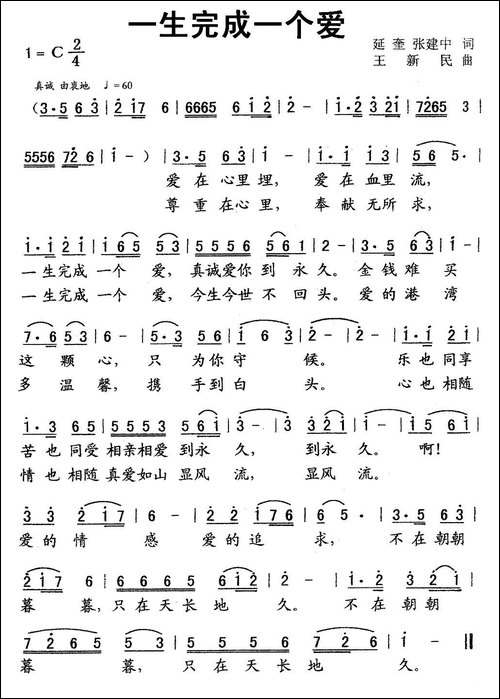 一生完成一个爱
1 = C 2/4
延奎 张建中 词
王新民 曲
真诚 由衷地 ♩=60
(3·5 6 3 | 2 1 7 6 | 6665 6 1 2 | 1 - | 1·2 3 2 1 | 7265 3 |
5556 7 2 6 | 1 - ) | 3·5 6 3 | 1 - | 1·1 1 3 | 5 6 5· |
爱在心里埋, 爱在血里流,
尊重在心里, 奉献无所求,
1·1 2 1 | 1 6 5 5 3 | 5 5 5 6 | 5 5 6 1 | 2 - | 2·3 6 5 |
一生完成一个爱, 真诚爱你到永久。金钱难买
一生完成一个爱, 今生今世不回头。爱的港湾
7·6 5 3 | 6 - | 5·3 5 6 1 | 2 - | 2 - | 1·1 2 1 |
这颗心, 只为你守候。乐也同享
多温馨, 携手到白头。心也相随
1·3 6 5 | 5 5 5 3 | 5 6 1 2 | 3 - | 3 2 1 2 | 1 - | 1 5 6 1 |
苦也同受相亲相爱到永久, 到永久。啊!
情也相随真爱如山显风流, 显风流。
3 3 2 1 7 | 6 - | 2 2 2 1 7 6 | 6 5· | 3·5 6 3 |
爱的情感爱的追求, 不在朝朝
2 1 7 6 | 6 6 6 5 6 1 2 | 1 - | 1·2 3 2 1 |
暮暮, 只在天长地久。不在朝朝
7 2 6 5 3 | 5 5 5 6 7 2 6 | 1 - | 1 - ‖
暮暮, 只在天长地久。